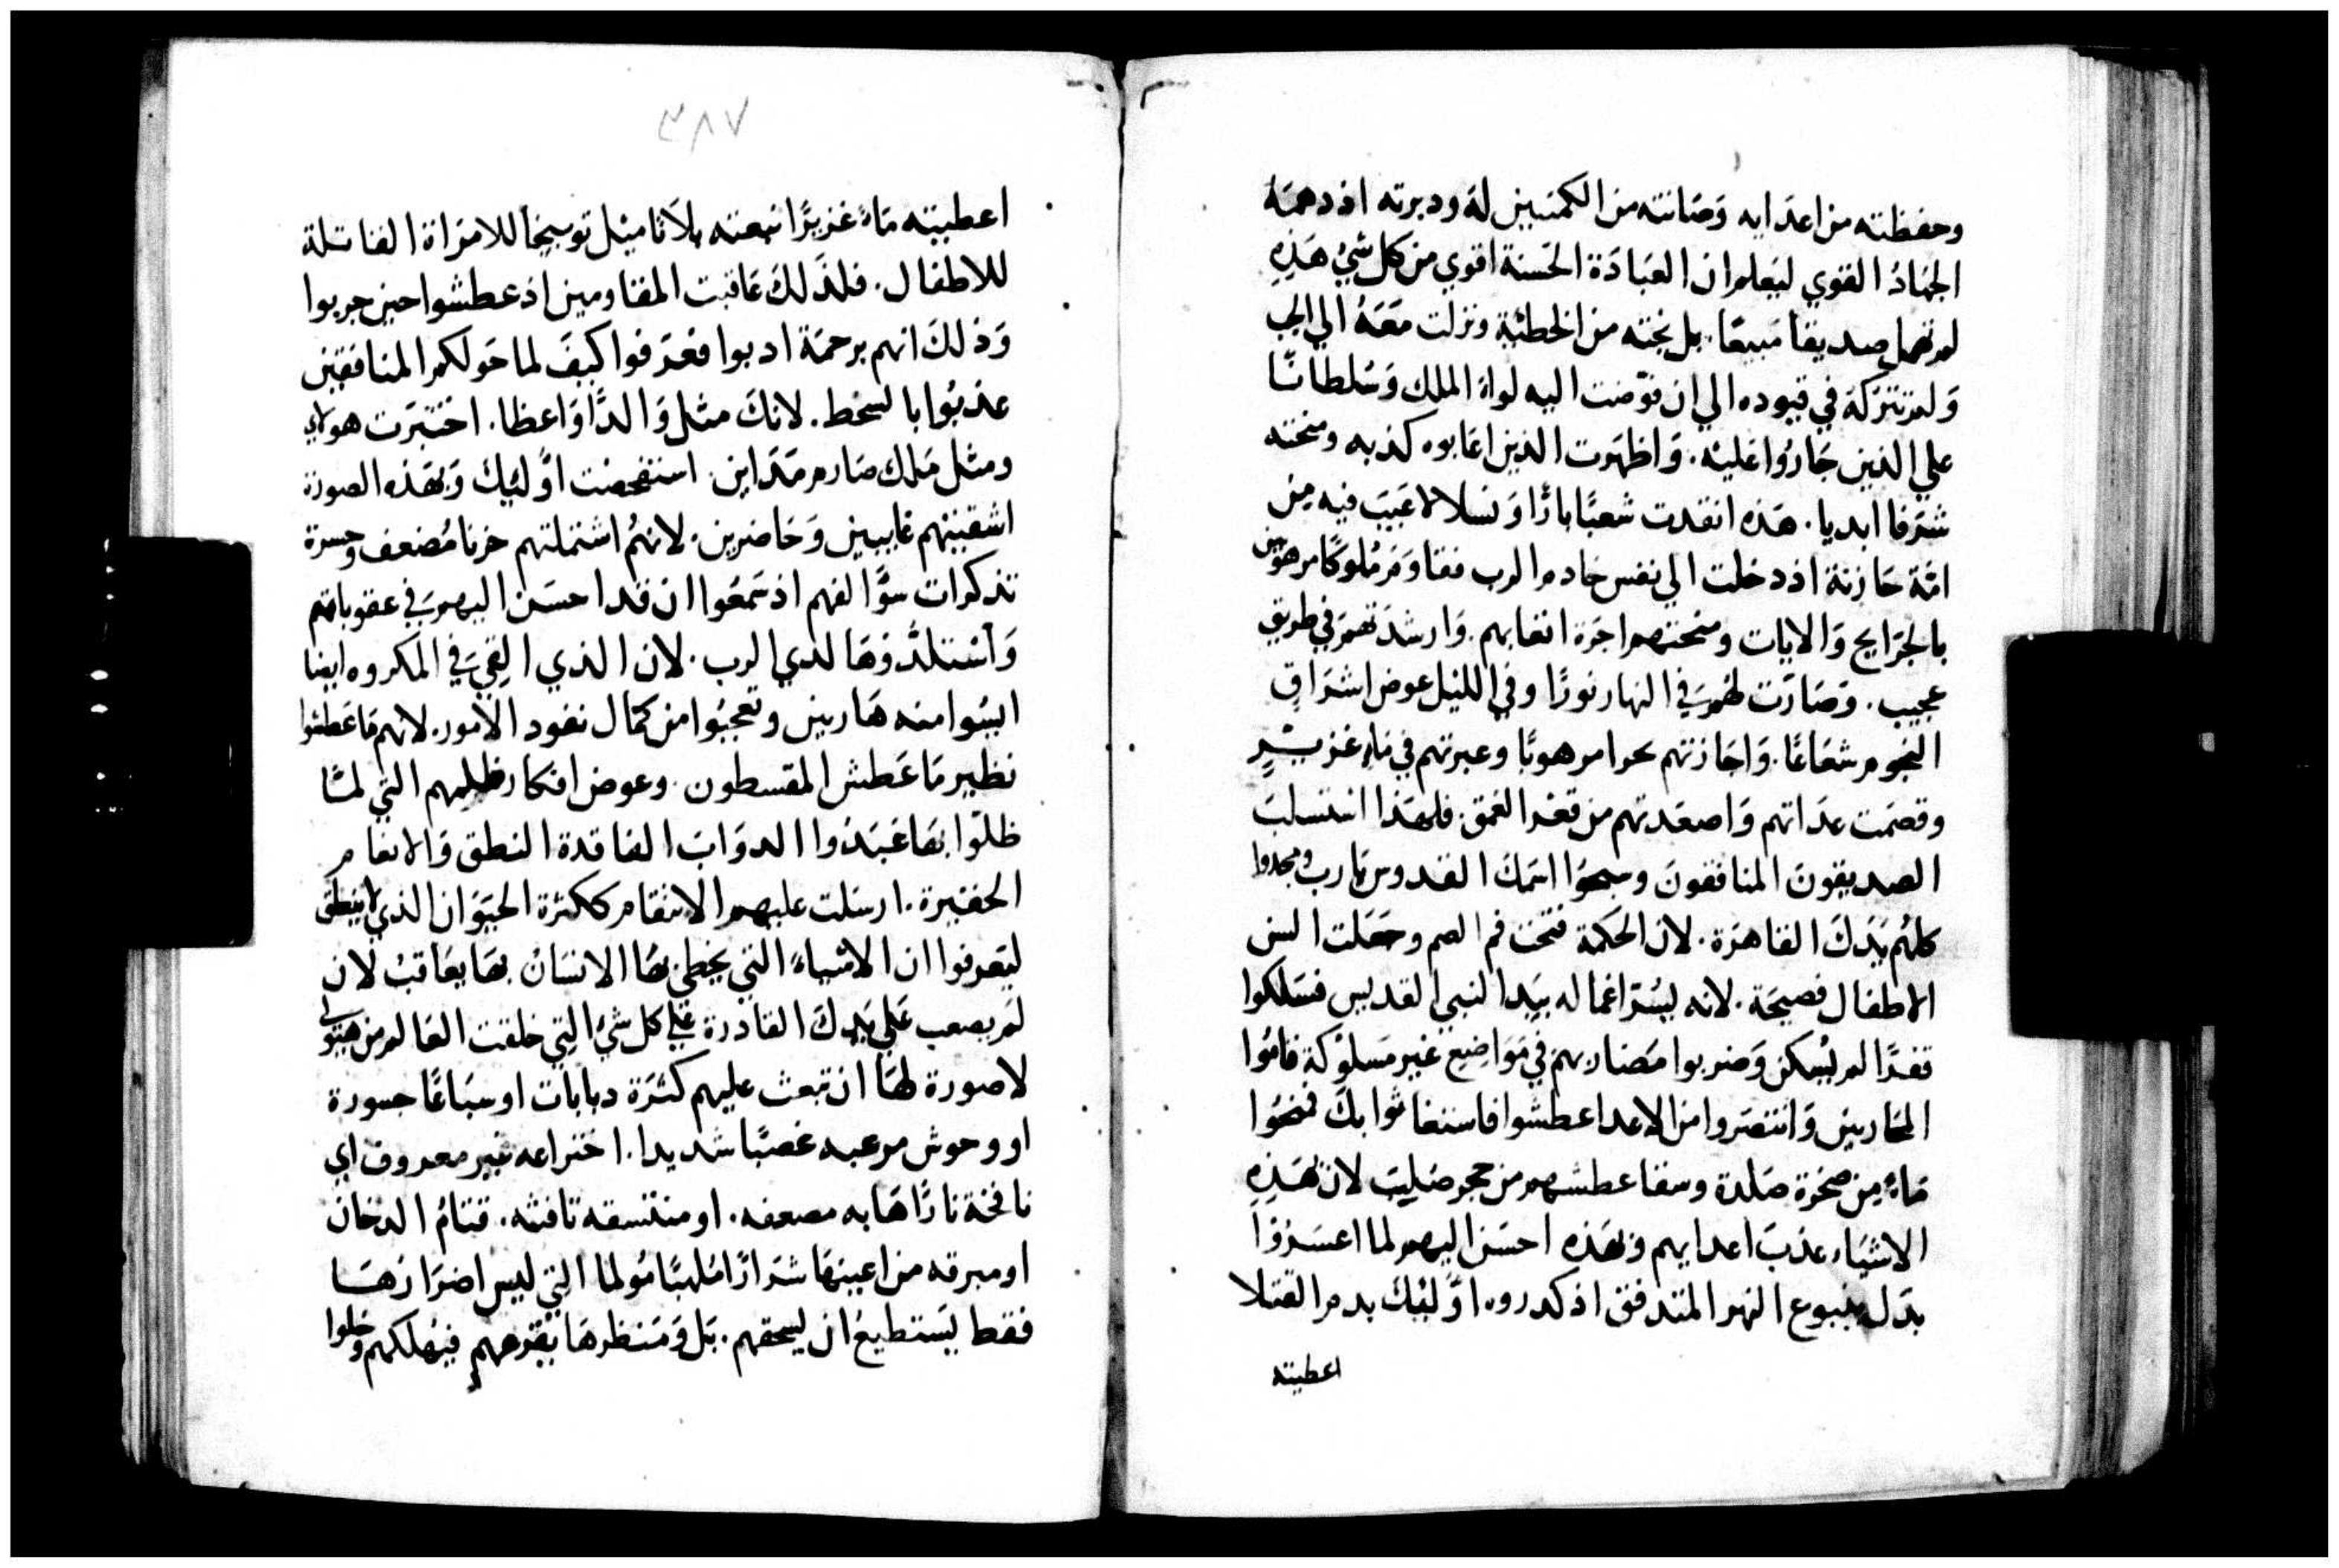 وحفظته من اعدايه وَصَانته من الكمنيين لهَ ودبرته اذ دهمَهُ
الجهَادُ القوي ليَعلم ان العبَادَة الحَسنة اقوي من كل شيُ هَذِهِ
لم تهمل صديقاً مَبيعًا. بل نجته من الخطيّة ونزلت مَعَهُ الي الجب
وَلم تتركهَ في قيوده الي ان فوّضت اليه لواءَ الملك وَسُلطانًا
علي الذين جَارُوا عَليْه. وَاظهَرت الذين اعَابوه كذبه ومنحته
شرَفا ابديا. هَذه انقدت شعبًا بارًا وَنسلا لا عَيبَ فيه مِن
امَّة حَازنة اذ دخلت الي نفس خادم الرب فقاوَمَ مُلوكًا مرهوبين
بالجرَايح وَالايات ومنحتهم اجرَة اتعابهم. وَارشدَتهمَ في طريق
عجيب. وَصَارَت لهُم َفي النهار نورًا وفي الليْل عوض اشرَاق
النجوم شعَاعًا. وَاجَازتهم بحرا مرهوبًا وعبرتهم في مَاءٍ غزيْرٍ
وقصَمت عدَاتهم وَاصعَدتهم من قعْر الغمق. فلهَذا استسلبَ
الصديقونَ المنافقونَ وسبحوُا اسَمكَ القدوس يَارب ومجدوا
كلهُم يَدَكَ القاهرَة. لان الحكمَة فتحت فم الصم وجَعَلت السن
الاطفال فصيحَة. لانه يسُرّ اغماله بيَد النبي القديس فسَلكوا
قفرًا لم يُسكن وَضربوا مَضاربهم في مَوَاضِع غير مَسلوُكة قامُوا
المحَاربين وَانتصَروا من الاعدا عطشوا فاستغاثوا بكَ فمنحُوا
مَاءً مِن صَخرة صَلدة وسقا عطشهم من حجر صَليبَ لان بهَذِهِ
الاشيَاء عذبَ اعدايهم وَبهَذه احسَن اليهم لما اعسَروُا
بدَل ينبوع النهر المتدفق اذ كدروه اوَّليْكَ بدم القتلا
اعطيته
٣٨٧
اعطيته مَاءً غزيرًا تبعته بلاَ تاميْل توبيخًا للامرَاة القاتلة
للاطفال. فلذَلكَ عَاقبت المقاومين اذ عطشوا حين جربوا
وَذلكَ انهم برحمَة ادبوا فعَرَفوا كيفَ لما حَولكم المنافقين
عذبُوا بالسخط. لانكَ مثل وَالدًا وَاعظا. اختبَرت هولاي
ومثل مَلك صَارم مَدَاين استفحصَت اوَّلئِكَ وَبهَذه الصورة
اشقيتهم غايبين وَحَاضرين. لانهُم اشتملتهم حزنا مُضعف وَحسرة
تذكرات سوَّالفهم اذ سَمعُوا ان قد احسَن اليهم َفي عقوباتهم
وَاستلذُّوَهَا لدي الرب. لان الذي القِيَ َفي المكروه ايضا
ايسُوا منه هَاربين وتعجبُوا من كمَال نفود الامور. لانهم مَا عَطشوا
نظير مَا عَطش المقسطون. وعوض افكار ظلمهم التي لمّا
ظلوّا بهَا عَبَدُوا الدوَابَ الفاقدة النطق وَالانعام
الحقيرة. ارسَلت عليهم الانتقام ككثرة الحيَوَان الذي لا ينطق
ليَعرفوا ان الاشيَاءَ التي يخطي بهَا الانسَانُ بهَا يعَاقبُ لان
لمَ يصعب عَلي يَدكَ القادرة عَلي كل شيُ التِي خلقت العَالم من هيولي
لا صورة لهَا ان تبعث عليهم كثرَة دبابات اوسبَاعًا جسورة
او وحوش مرعبه غصبًا شديدا. اختراعه غير معروف اي
نافخة نارًا هَابه مصعفه. او منتسقه تافثه. قتامُ الدخان
او مبرقه من اعينهَا شرَارًا مُلهبًا مُولما التي ليس اضرَارهَا
فقط يسَتطيعُ ان يسحقهم. بَل وَمَنظرهَا يقرعهم فيهلكهم وَخلوا